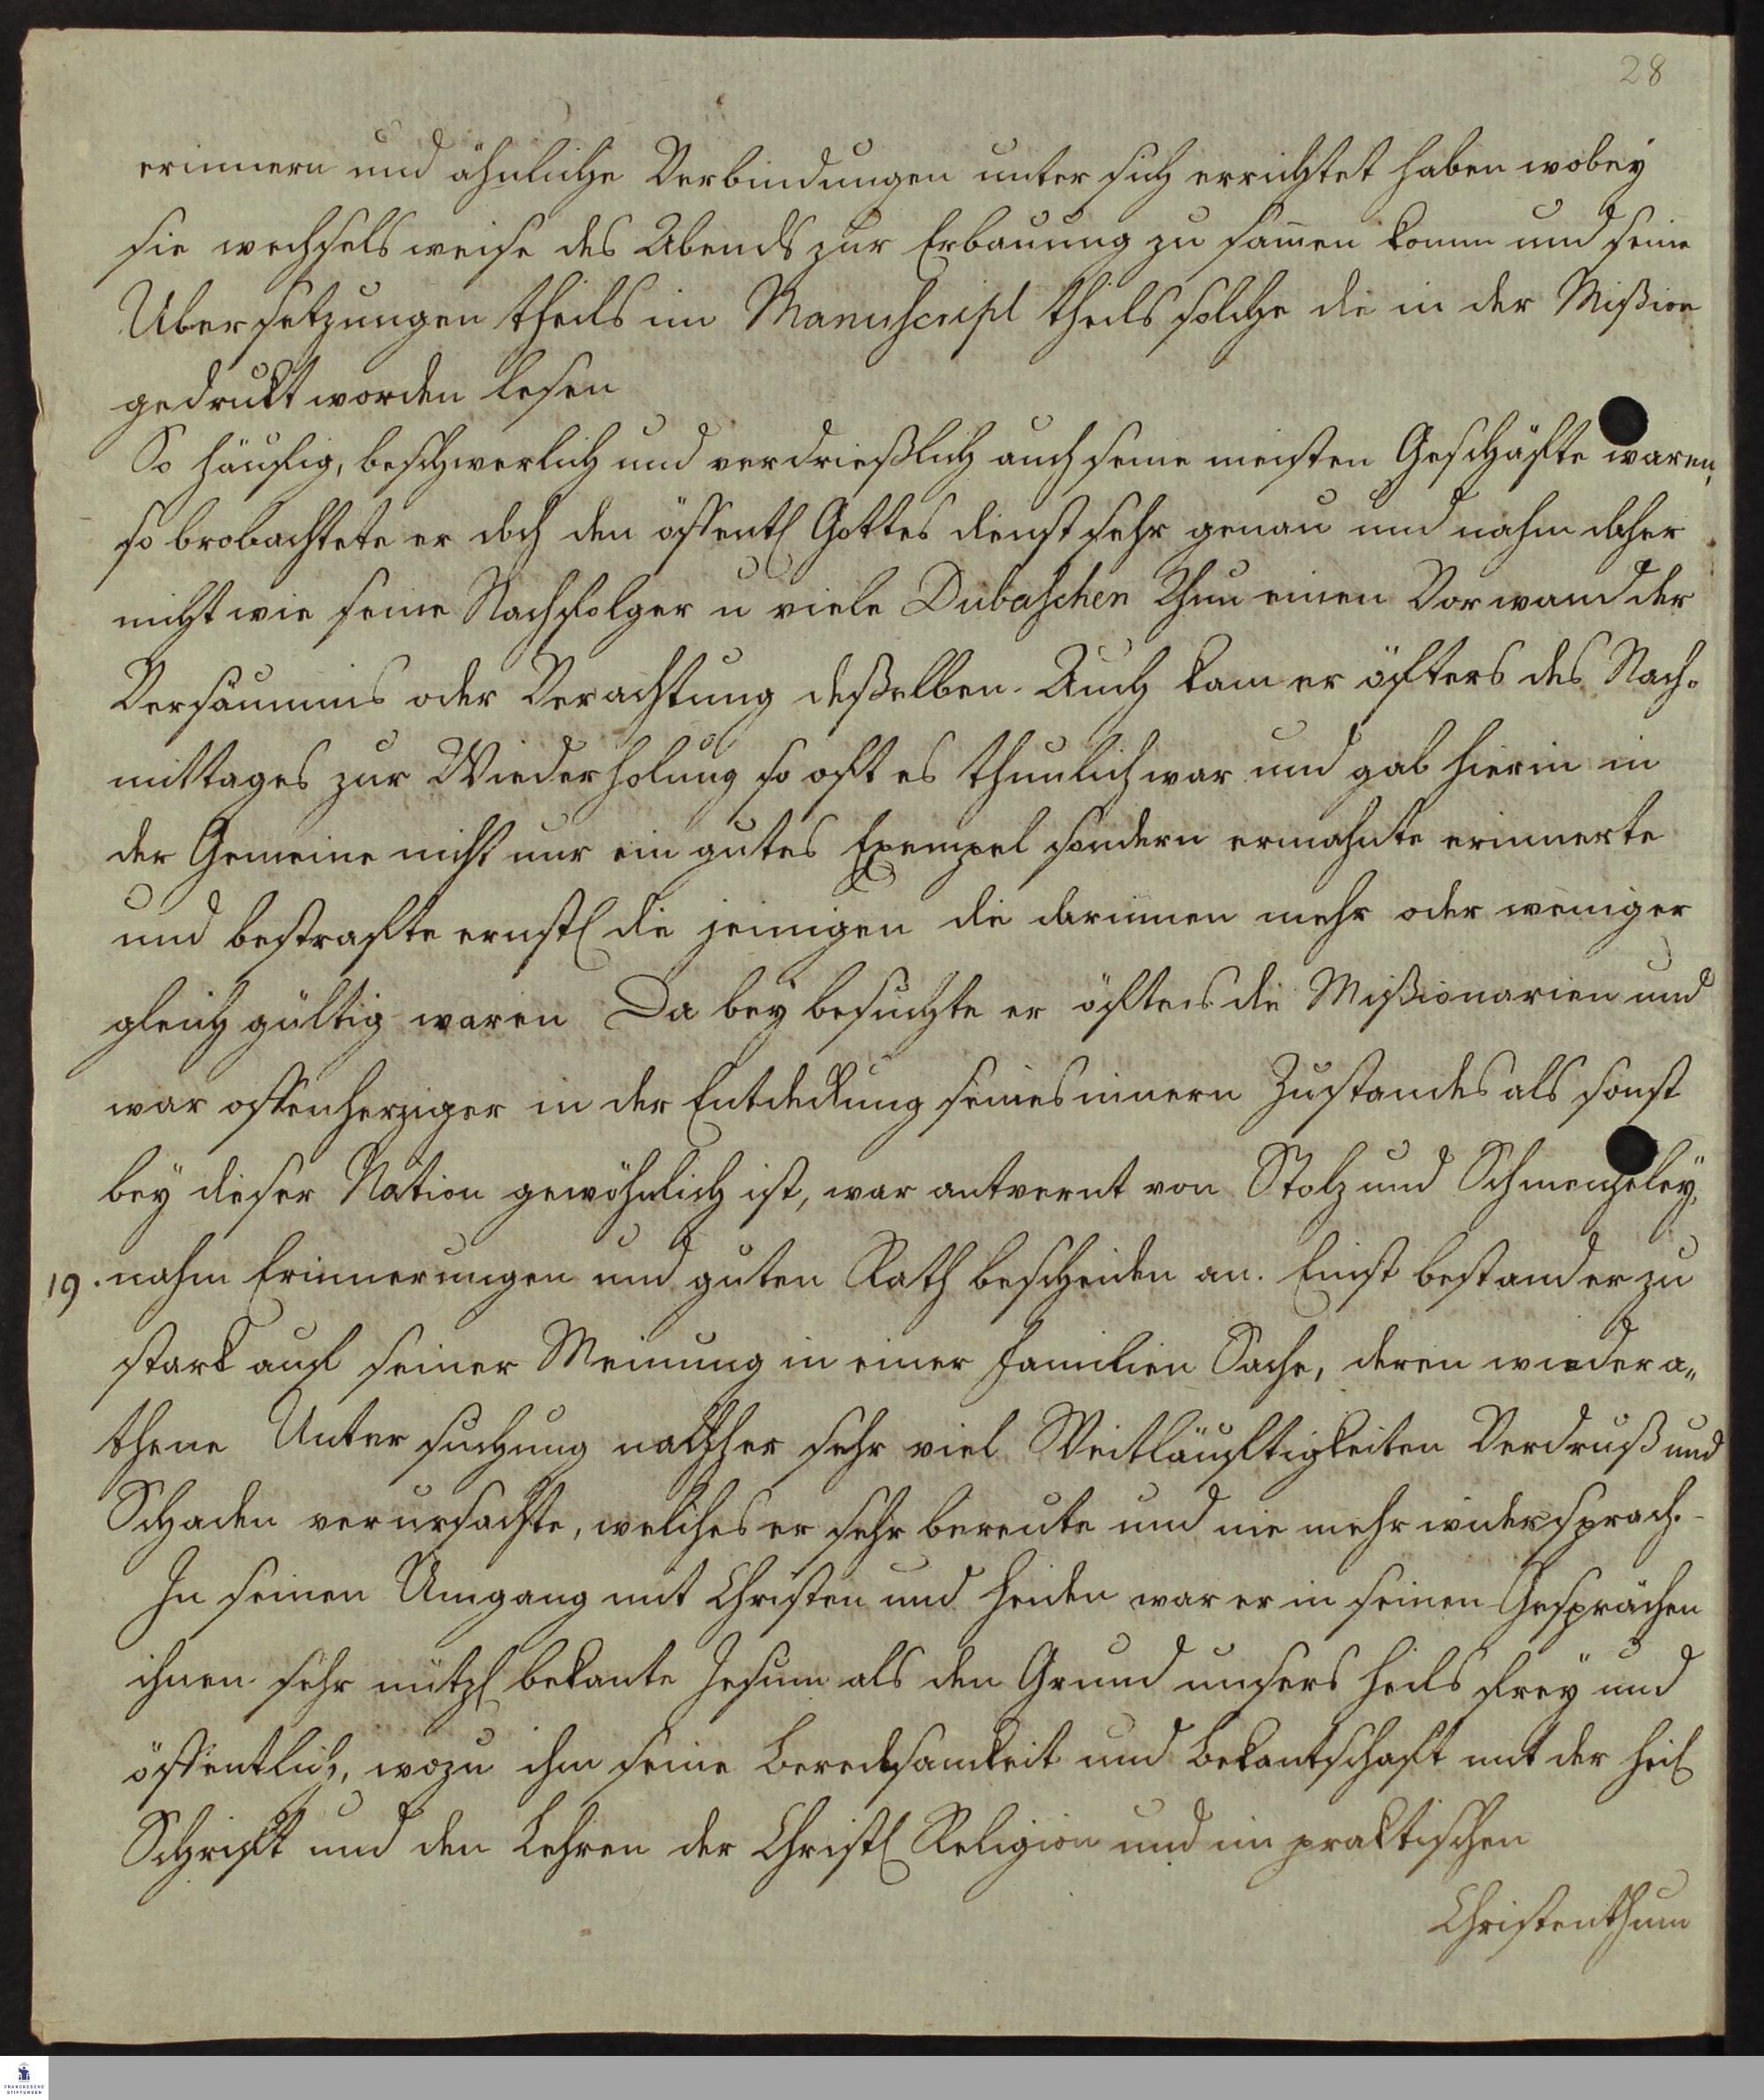 28
erinnern und ähnliche Verbindungen unter sich errichtet haben wobey
sie wechsels weise des Abends zur Erbauung zu samen komm und seine
Ubersetzungen theils im Manuscript theils solche die in der Mißion
gedrukt worden lesen
So häufig, beschwerlich und verdrießlich auch seine meisten Geschäfte waren,
so brobachtete er doch den öffentl Gottes dienst sehr genau und nahm daher
nicht wie seine Nachfolger u viele Dubaschen thun einen Vorwand der
Versäumnis oder Verachtung deßelben. Auch kam er öfters des Nach-
mittages zur Wiederholung so oft es thunlich war und gab hierin in
der Gemeine nicht nur ein gutes Exempel sondern ermahnte erinnerte
und bestrafte ernstl die jenigen die darinnen mehr oder weniger
gleich gültig waren Da bey besuchte er öfters die Mißionarien und
war offenherziger in der Entdekung seines innern Zustandes als sonst
bey dieser Nation gewöhnlich ist, war antvernt von Stolz und Schmeicheley,
19. nahm Erinnerungen und guten Rath bescheiden an. Einst bestand er zu
stark auf seiner Meinung in einer Familien Sache, deren wiedera„
thene Untersuchung nachher sehr viel Weitläuftigkeiten Verdruß und
Schaden verursachte, welches er sehr bereute und nie mehr widersprach.-
In seinen Umgang mit Christen und Heiden war er in seinen Gesprächen
ihnen sehr nützl bekante Jesum als den Grund unsers Heils frey und
öffentlich, wozu ihm seine Beredsamkeit und Bekantschaft mit der Heil
Schrift und den Lehren der Christl Religion und im praktischen
Christenthum
FRANCKESCHE
STIFTUNGEN